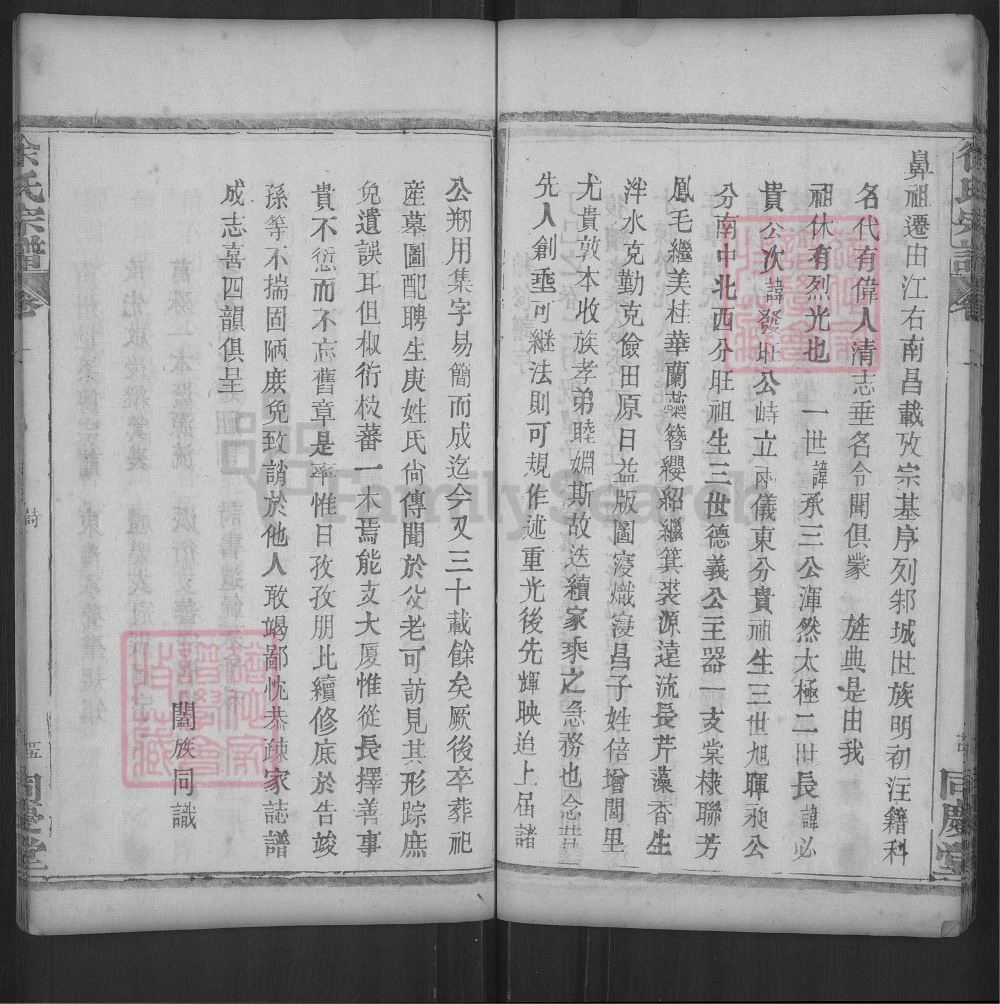 鼻祖遷田江右南昌載攷宗基序列邾城世族明初注籍科
名代有偉人清志垂名令聞俱蒙 旌典是由我
祖休有烈光也 一世諱承三公渾然太極二世長諱必
貴公次諱發址公峙立兩儀東分貴祖生三世旭暉昶公
分南中北西分旺祖生三世德義公主器一支棠棣聯芳
鳳毛繼美桂華蘭蘂簪纓紹繼箕裘源遠流長芹藻香生
泮水克勤克儉田原日益版圖寖熾寖昌子姓倍增閭里
尤貴敦本收族孝弟睦婣斯故迭續家乘之急務也念昔
先人創垂可継法則可規作述重光後先輝映迨上届諸
公刱用集字易簡而成迄今又三十載餘矣厥後卒葬祀
産墓圖配聘生庚姓氏尙傳聞於父老可訪見其形踪庶
免遺誤耳但椒衍枝蕃一木焉能支大厦惟從長擇善事
貴不愆而不忘舊章是率惟日孜孜朋比續修底於告竣
孫等不揣固陋庶免致誚於他人敢竭鄙忱恭疎家誌譜
成志喜四韻俱呈
闔族同識
徐氏宗譜 卷
五
同慶堂
FamilySearch